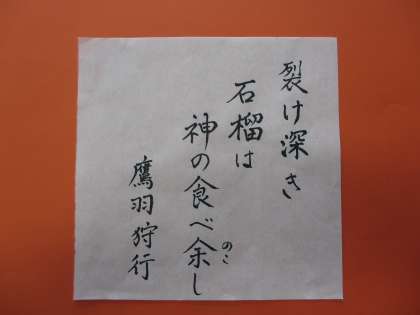 裂け深き
石榴は
神の食べ余し
のこ
鷹羽狩行